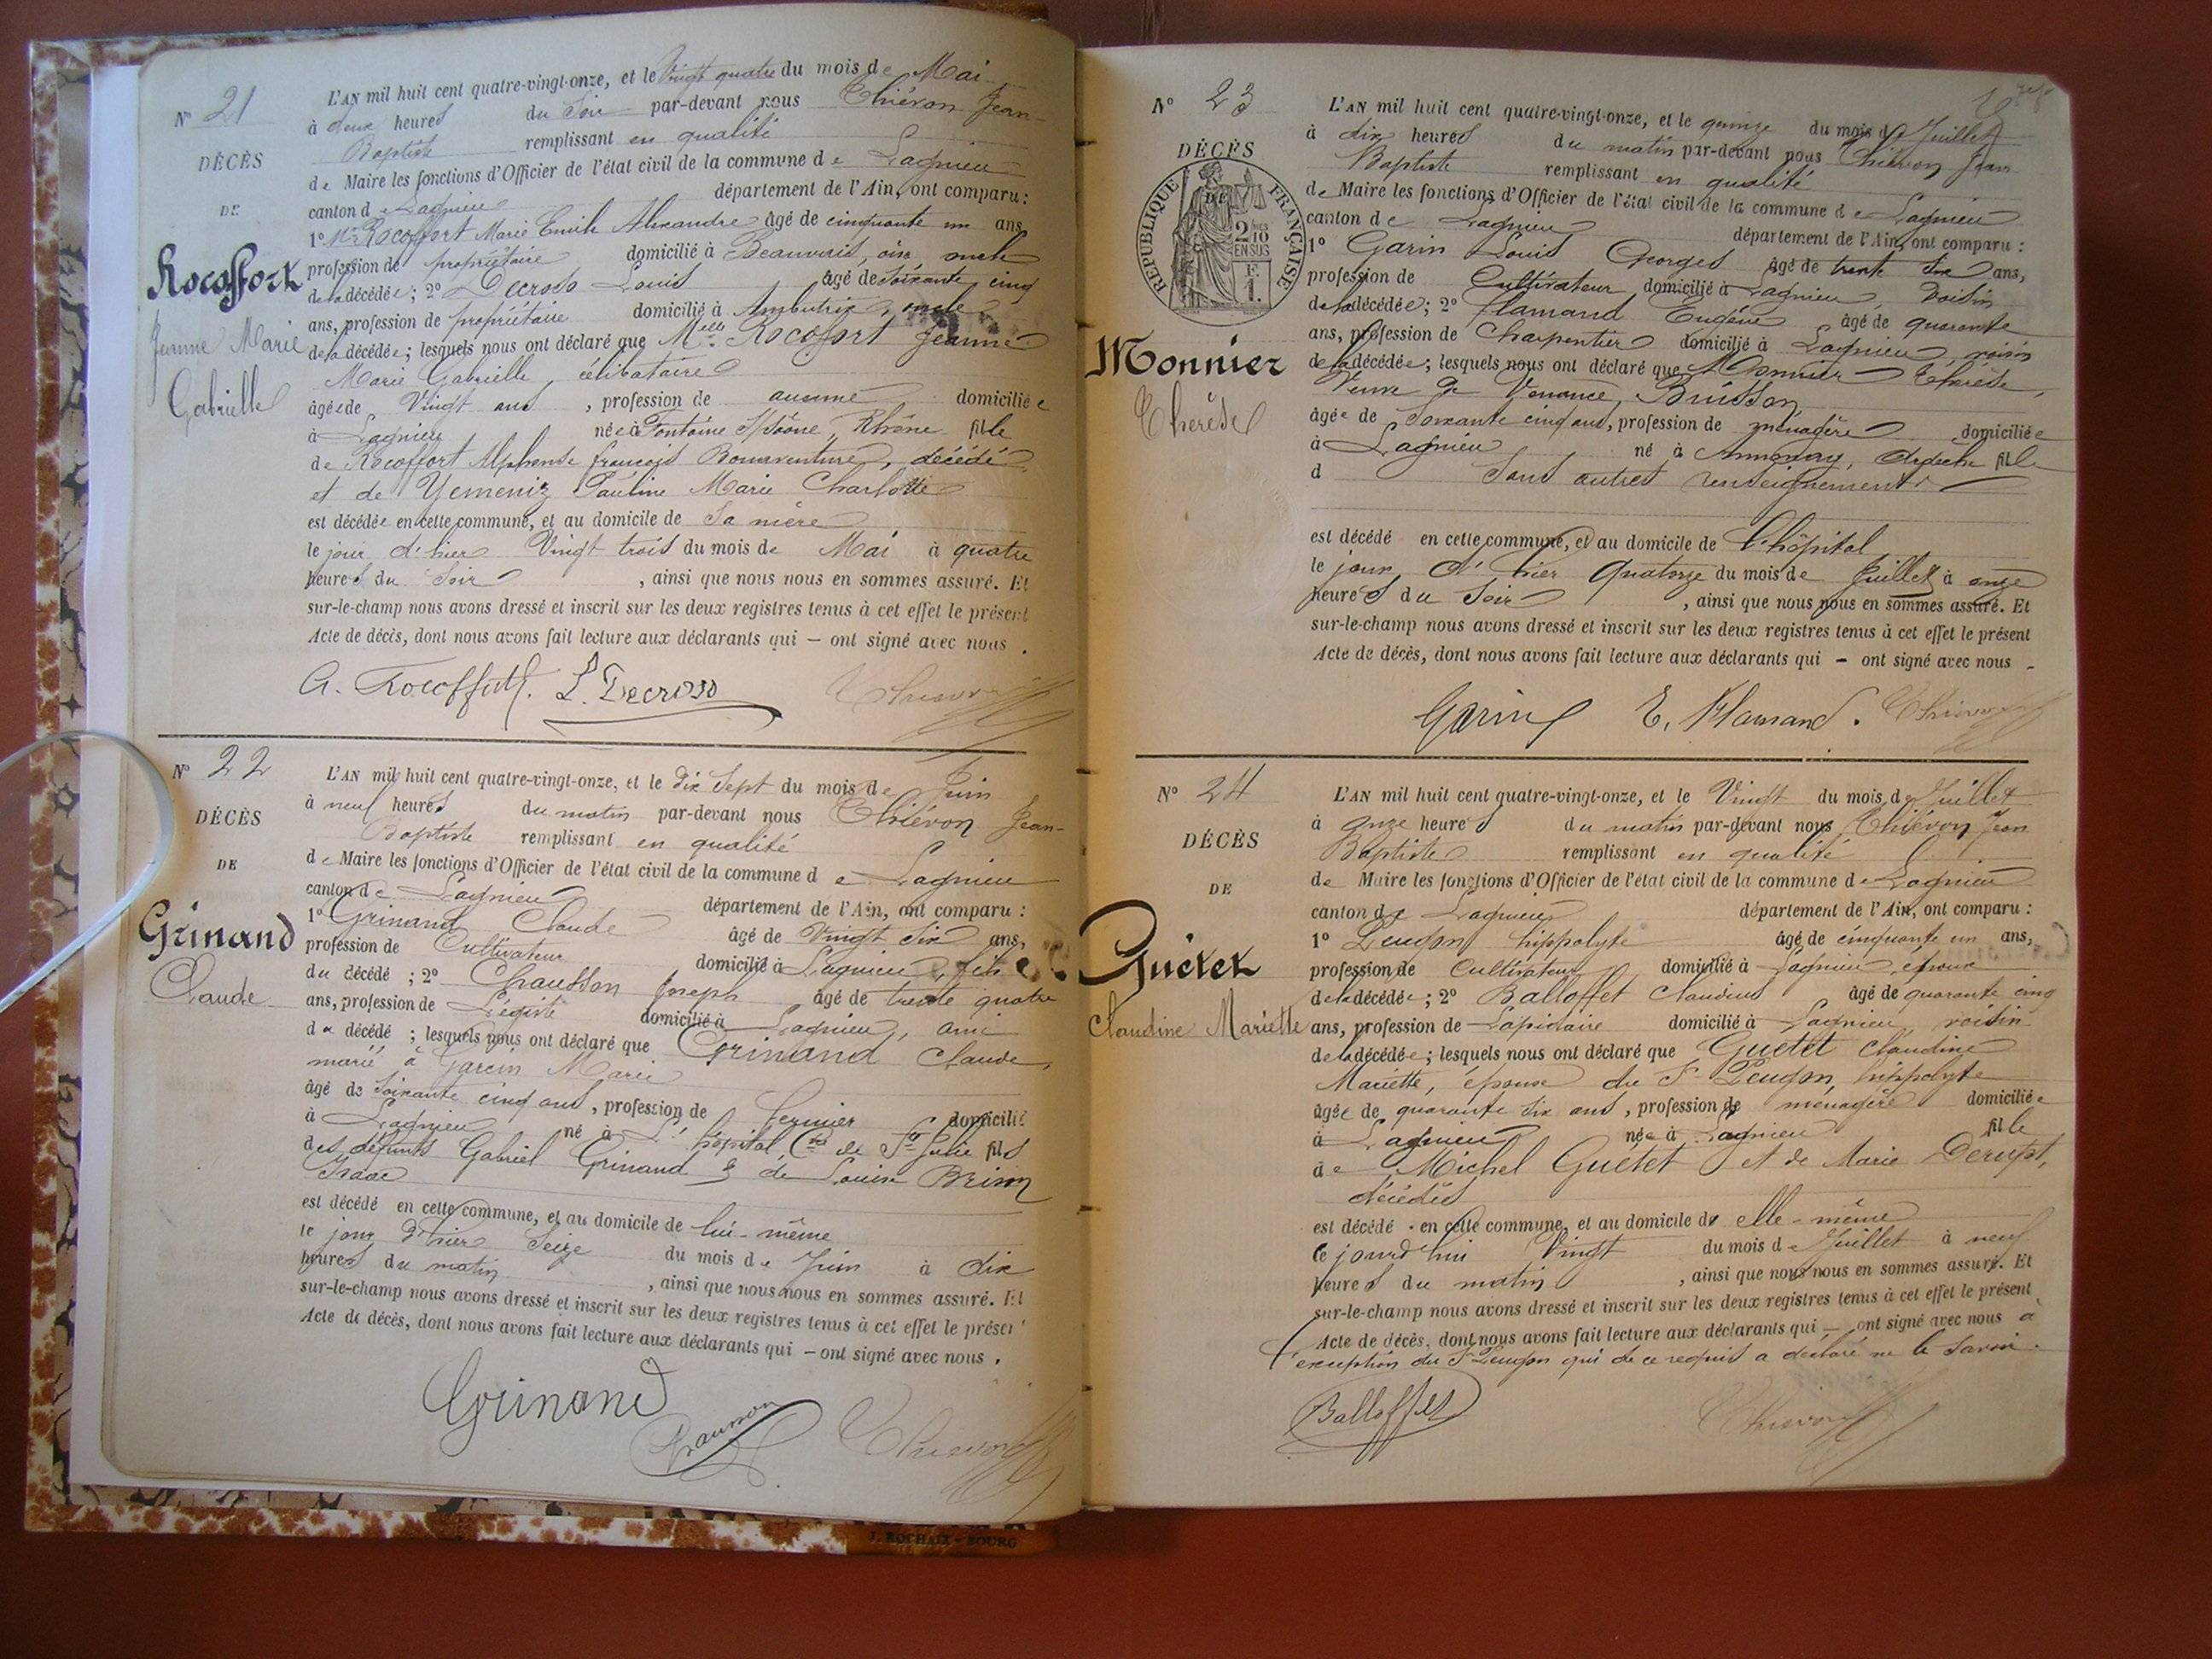 N° 21
DÉCÈS
DE
Rocoffort
Jeanne Marie
Gabrielle
L'AN mil huit cent quatre-vingt-onze, et le Vingt quatre du mois de Mai
à deux heures du Soir par-devant nous Thiévon Jean-
Baptiste remplissant en qualité
de Maire les fonctions d'Officier de l'état civil de la commune de Lagnieu
canton de Lagnieu département de l'Ain, ont comparu :
1° Mr Rocoffort Marie Emile Alexandre âgé de cinquante un ans,
profession de propriétaire domicilié à Beauvais, oise, oncle
de la décédée ; 2° Decroso Louis âgé de soixante cinq
ans, profession de propriétaire domicilié à Ambutrix, oncle
de la décédée ; lesquels nous ont déclaré que Melle Rocoffort Jeanne
Marie Gabrielle, célibataire
âgée de Vingt ans, profession de aucune domiciliée
à Lagnieu née à Fontaine S/Saône, Rhône fille
de Rocoffort Alphonse françois Bonaventure, décédé
et de Yemeniz Pauline Marie Charlotte
est décédée en cette commune, et au domicile de Sa mère
le jour d'hier Vingt trois du mois de Mai à quatre
heures du Soir, ainsi que nous nous en sommes assuré. Et
sur-le-champ nous avons dressé et inscrit sur les deux registres tenus à cet effet le présent
Acte de décès, dont nous avons fait lecture aux déclarants qui — ont signé avec nous.
A. Rocoffort. L. Decroso Thiévon
N° 22
DÉCÈS
DE
Grinand
Claude
L'AN mil huit cent quatre-vingt-onze, et le dix Sept du mois de Juin
à neuf heures du matin par-devant nous Thiévon Jean-
Baptiste remplissant en qualité
de Maire les fonctions d'Officier de l'état civil de la commune de Lagnieu
canton de Lagnieu département de l'Ain, ont comparu :
1° Grinand Claude âgé de Vingt Six ans,
profession de Cultivateur domicilié à Lagnieu, fils
du décédé ; 2° Chausson Joseph âgé de trente quatre
ans, profession de Légiste domicilié à Lagnieu, ami
du décédé ; lesquels nous ont déclaré que Grinand Claude,
marié à Garcin Marie
âgé de Soixante cinq ans, profession de fermier domicilié
à Lagnieu né à L'hôpital Cne de Ste Julie fils
des défunts Gabriel Grinand & de Louise Brison
est décédé en cette commune, et au domicile de lui-même
le jour d'hier Seize du mois de Juin à dix
heures du matin, ainsi que nous nous en sommes assuré. Et
sur-le-champ nous avons dressé et inscrit sur les deux registres tenus à cet effet le présent
Acte de décès, dont nous avons fait lecture aux déclarants qui — ont signé avec nous.
Grinand
Chausson Thiévon
J. ROCHAIX - BOURG
N° 23
DÉCÈS
DE
RÉPUBLIQUE FRANÇAISE
2/10 EN SUS
1 F.
Monnier
Thérèse
L'AN mil huit cent quatre-vingt-onze, et le quinze du mois de Juillet
à dix heures du matin par-devant nous Thiévon Jean-
Baptiste remplissant en qualité
de Maire les fonctions d'Officier de l'état civil de la commune de Lagnieu
canton de Lagnieu département de l'Ain, ont comparu :
1° Garin Louis Georges âgé de trente Six ans,
profession de Cultivateur domicilié à Lagnieu, Voisin
de la décédée ; 2° flamand Eugène âgé de quarante
ans, profession de Charpentier domicilié à Lagnieu, voisin
de la décédée ; lesquels nous ont déclaré que Monnier Thérèse,
Veuve de Venance Buisson
âgée de Soixante cinq ans, profession de ménagère domiciliée
à Lagnieu né à Annonay, Ardèche fille
d Sans autres renseignements
est décédé en cette commune, et au domicile de l'hôpital
le jour d'hier Quatorze du mois de Juillet à onze
heures du Soir, ainsi que nous nous en sommes assuré. Et
sur-le-champ nous avons dressé et inscrit sur les deux registres tenus à cet effet le présent
Acte de décès, dont nous avons fait lecture aux déclarants qui — ont signé avec nous
Garin E. Flamand. Thiévon
N° 24
DÉCÈS
DE
Guétet
Claudine Mariette
L'AN mil huit cent quatre-vingt-onze, et le Vingt du mois de Juillet
à onze heures du matin par-devant nous Thiévon Jean
Baptiste remplissant en qualité
de Maire les fonctions d'Officier de l'état civil de la commune de Lagnieu
canton de Lagnieu département de l'Ain, ont comparu :
1° Peugon hippolyte âgé de cinquante un ans,
profession de Cultivateur domicilié à Lagnieu, époux
de la décédée ; 2° Balloffet Claudius âgé de quarante cinq
ans, profession de Lapidaire domicilié à Lagnieu, voisin
de la décédée ; lesquels nous ont déclaré que Guétet Claudine
Mariette, épouse du Sr Peugon, hippolyte
âgée de quarante Six ans, profession de ménagère domiciliée
à Lagnieu née à Lagnieu fille
de Michel Guétet et de Marie Derupt,
décédés
est décédé en cette commune, et au domicile d'elle-même
ce jourd'hui Vingt du mois de Juillet à neuf
heures du matin, ainsi que nous nous en sommes assuré. Et
sur-le-champ nous avons dressé et inscrit sur les deux registres tenus à cet effet le présent
Acte de décès, dont nous avons fait lecture aux déclarants qui — ont signé avec nous à
l'exception du Sr Peugon qui de ce requis a déclaré ne le Savoir.
Balloffet Thiévon